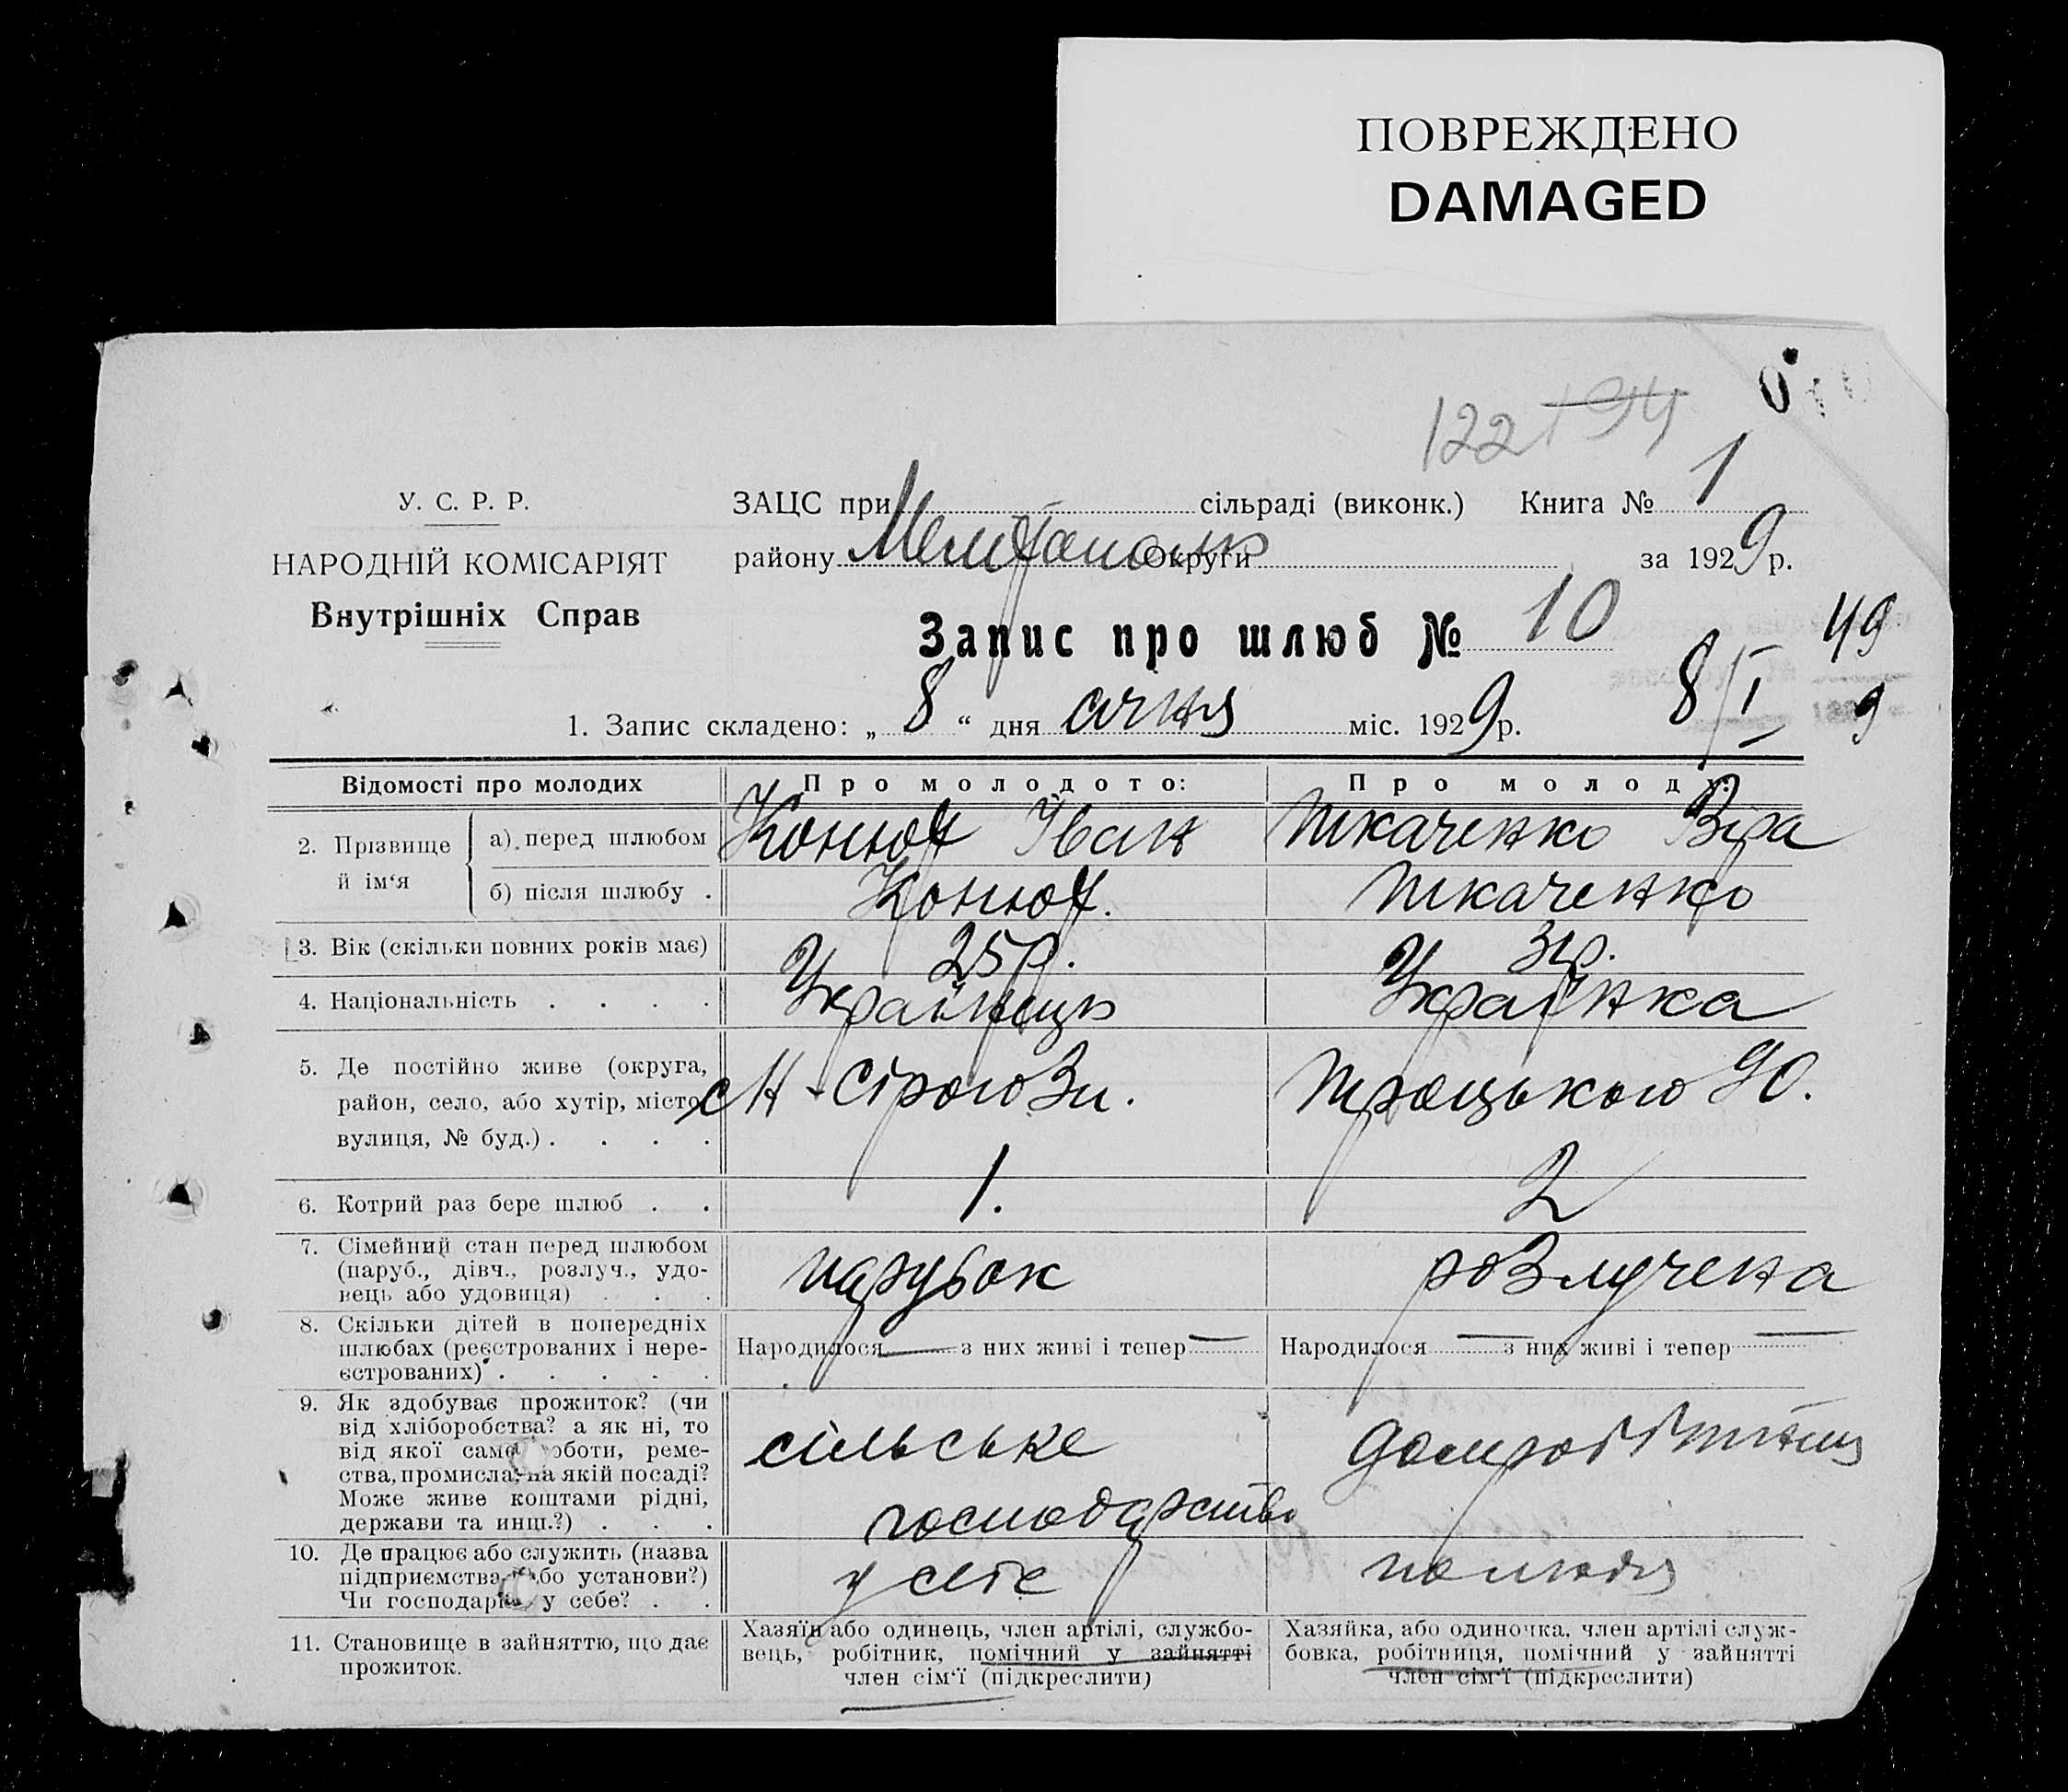 ПОВРЕЖДЕНО
DAMAGED
122 194
0
У. С. Р. Р.
НАРОДНІЙ КОМІСАРІЯТ
Внутрішніх Справ
ЗАЦС при сільраді (виконк.) Книга № 1
району Мелітополь Округи за 1929 р.
Запис про шлюб № 10
49
8/I 9
1. Запис складено: „ 8 “ дня січня міс. 1929 р.
Відомості про молодих
Про молодого:
Про молоду:
2. Прізвище й ім‘я
а) перед шлюбом Конюх Іван Ткаченко Віра
б) після шлюбу . Конюх. Ткаченко
3. Вік (скільки повних років має) 25 р. 31 р.
4. Національність . . . . Українець Українка
5. Де постійно живе (округа,
район, село, або хутір, місто,
вулиця, № буд.) . . . .
сН-Сірогози.
Троцького 90.
6. Котрий раз бере шлюб . . 1. 2
7. Сімейний стан перед шлюбом
(паруб., дівч., розлуч., удо-
вець або удовиця) . . .
парубок
розлучена
8. Скільки дітей в попередніх
шлюбах (реєстрованих і нере-
єстрованих) . . . . .
Народилося — з них живі і тепер —
Народилося — з них живі і тепер —
9. Як здобуває прожиток? (чи
від хліборобства? а як ні, то
від якої саме роботи, реме-
ства, промисла, на якій посаді?
Може живе коштами рідні,
держави та инш.?) . . .
сільське
господарство
домробітниця
10. Де працює або служить (назва
підприємства або установи?)
Чи господарює у себе? . .
у селі
по людях
11. Становище в зайняттю, що дає
прожиток.
Хазяїн або одинець, член артілі, службо-
вець, робітник, помічний у зайнятті
член сім‘ї (підкреслити)
Хазяйка, або одиночка, член артілі служ-
бовка, робітниця, помічний у зайнятті
член сім‘ї (підкреслити)